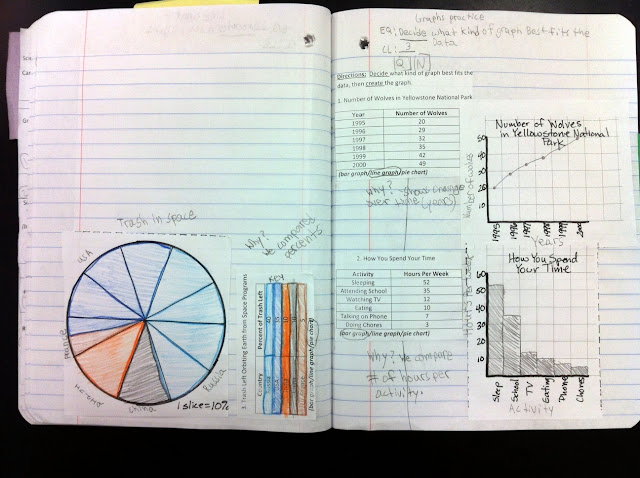 Trash In space
USA
France
China
Russia
1 slice=10%
Why?
We compare
percents
3. Trash Left Orbiting Earth from Space Programs
KEY
Country
Percent of Trash Left
40
(bar graph/line graph/pie chart)
Graphs practice
EQ: Decide what kind of graph Best fits the
Data
CL: 3
Q N
Directions: Decide what kind of graph best fits the
data, then create the graph.
1. Number of Wolves in Yellowstone National Park
Year Number of Wolves
1995 20
1996 29
1997 32
1998 35
1999 42
2000 49
(bar graph/line graph/pie chart)
Why? show change
over time (years)
Number of Wolves
in Yellowstone National
Park
Number of wolves
50
40
30
20
10
1995
1996
1997
1998
1999
2000
Years
2. How You Spend Your Time
Activity Hours Per Week
Sleeping 52
Attending School 35
Watching TV 12
Eating 10
Talking on Phone 7
Doing Chores 3
(bar graph/line graph/pie chart)
Why? We compare
# of hours per
activity.
How You Spend
Your Time
Hours Per week
60
50
40
30
20
10
Sleep
School
TV
Eating
Phone
Chores
Activity